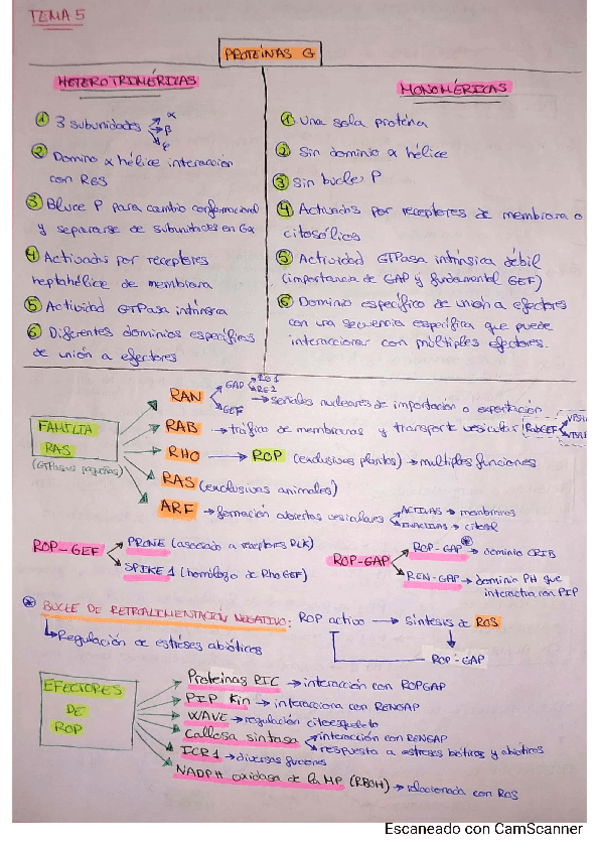 TEMA 5
PROTEÍNAS G
HETEROTRIMÉRICAS
① 3 subunidades α
β
② Dominio α hélice interacción
con RGS
③ Bluce P para cambio conformacional
y separarse de subunidades en Gα
④ Activadas por receptores
heptahélice de membrana
⑤ Actividad GTPasa intrínsica
⑥ Diferentes dominios específicos
de unión a efectores
MONOMÉRICAS
① Una sola proteína
② Sin dominio α hélice
③ Sin bucle P
④ Activadas por receptores de membrana o
citosólicos
⑤ Actividad GTPasa intrínsica débil
(importancia de GAP y fundamental GEF)
⑥ Dominio específico de unión a efectores
con una secuencia específica que puede
interaccionar con múltiples efectores.
FAMILIA
RAS
(GTPasas pequeñas)
RAN GAP
GEF → señales nucleares de importación o exportación
RAB → tráfico de membranas y transporte vesicular RabGEF
RHO → ROP (exclusivas plantas) → multiples funciones
RAS (exclusivas animales)
ARF → formación cubiertas vesiculares ACTIVAS → membranas
INACTIVAS → citosol
ROP-GEF PRONE (asociado a receptores RLK)
SPIKE 1 (homólogo de RhoGEF)
ROP-GAP ROP-GAP → dominio CRIB
REN-GAP → dominio PH que
interactua con PIP
* BUCLE DE RETROALIMENTACIÓN NEGATIVO: ROP activo → Síntesis de ROS
ROP-GAP
Regulación de estréses abióticos
EFECTORES
DE
ROP
Proteínas RIC → interacción con ROPGAP
PIP Kin → interacciona con RENGAP
WAVE → regulación citoesqueleto
Callosa sintasa → interacción con RENGAP
respuesta a estreses bióticos y abióticos
ICR1 → diversas funciones
NADPH oxidasa de la MP (RBOH) → relacionada con ROS
Escaneado con CamScanner